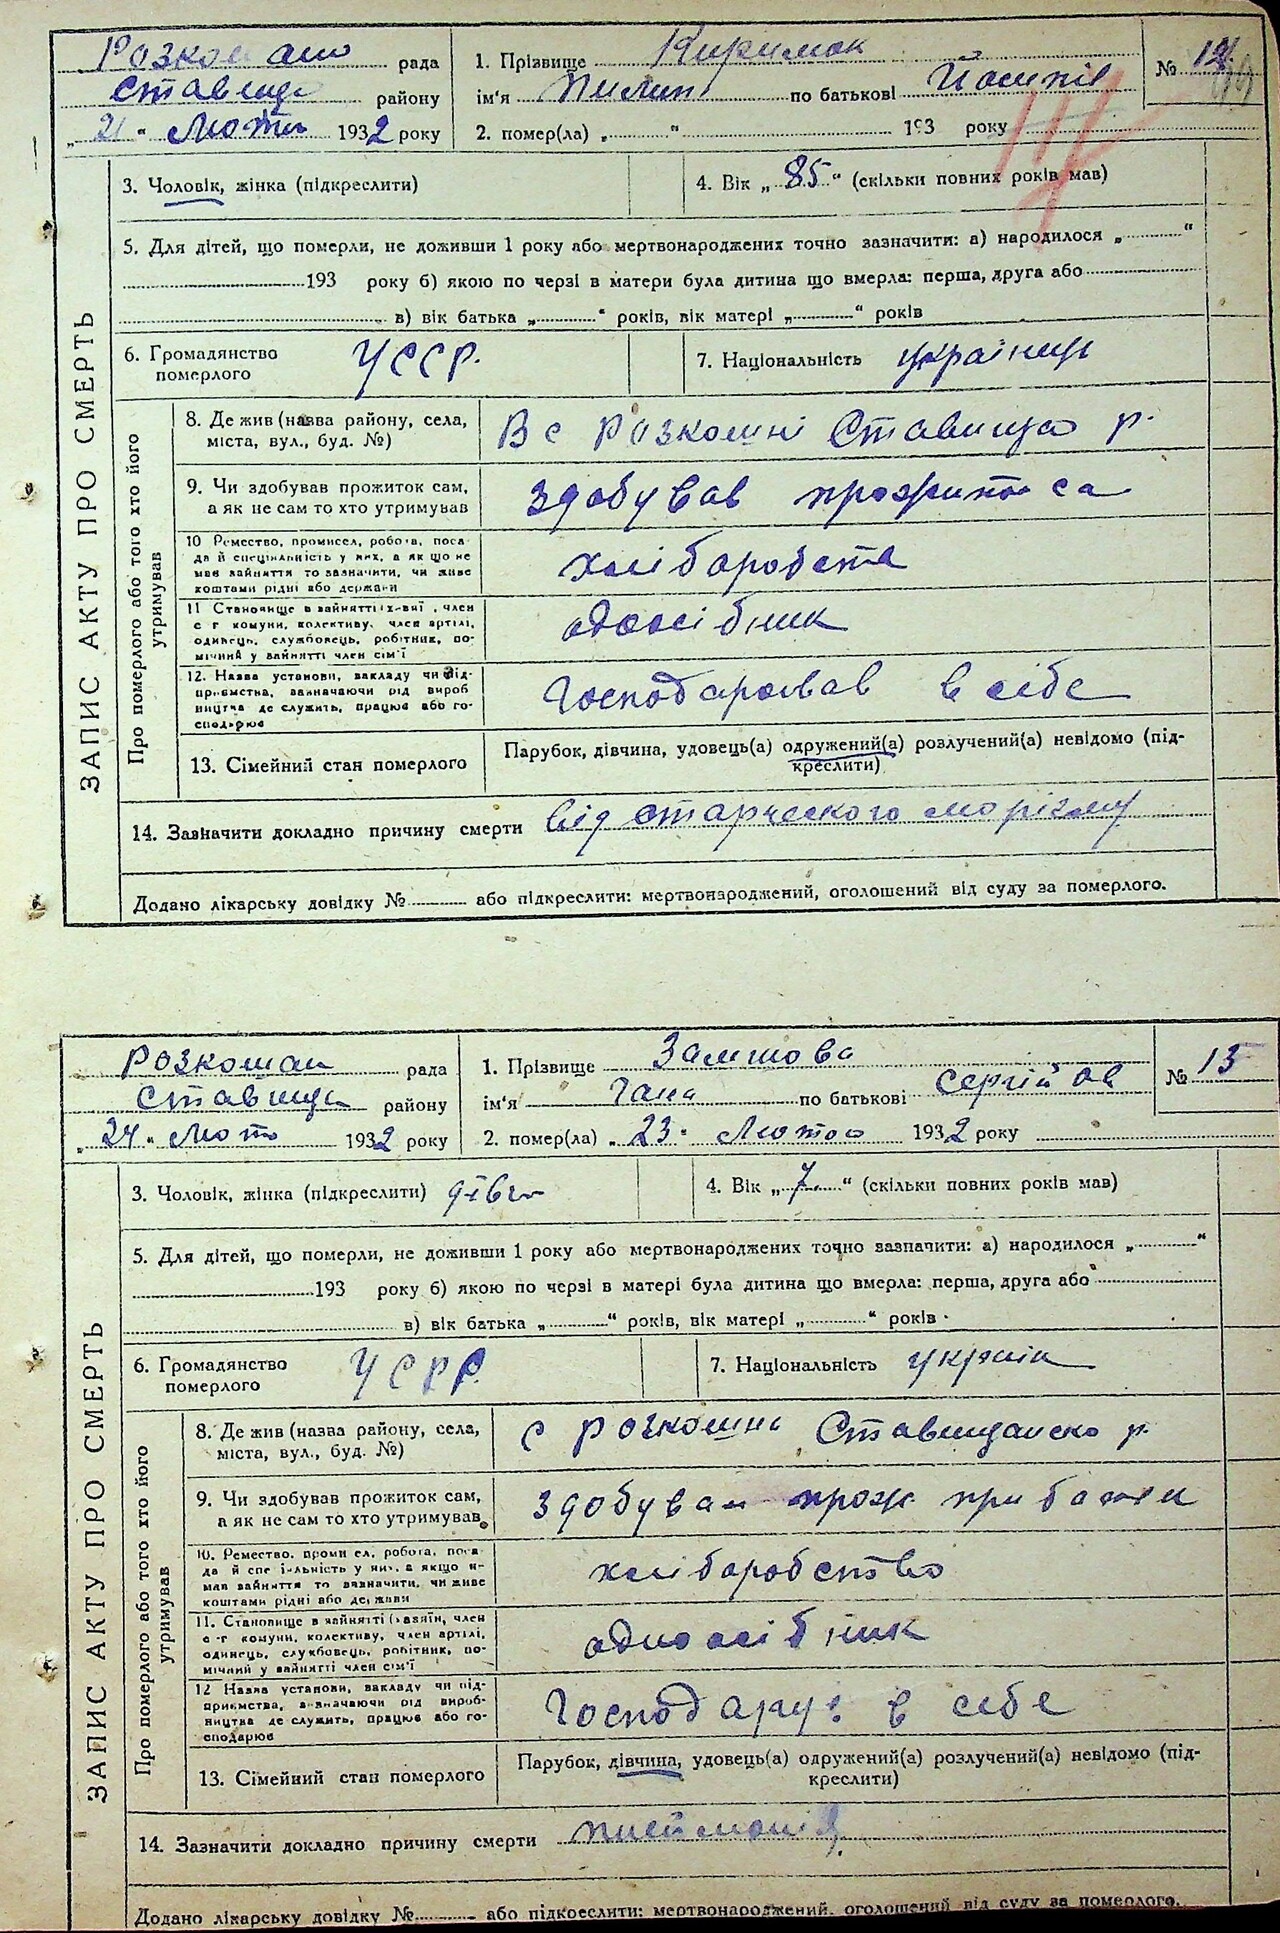 рада 1. Прізвище Киримок № 14
Ставище району ім'я Пилип по батькові Йосипів
„21“ Лютого 1932 року 2. помер(ла) „ “ 193 року
3. Чоловік, жінка (підкреслити) 4. Вік „85“ (скільки повних років мав)
5. Для дітей, що померли, не доживши 1 року або мертвонароджених точно зазначити: а) народилося „ “
193 року б) якою по черзі в матери була дитина що вмерла: перша, друга або
в) вік батька „ “ років, вік матері „ “ років
ЗАПИС АКТУ ПРО СМЕРТЬ
6. Громадянство померлого УССР. 7. Національність українець
Про померлого або того хто його утримував
8. Де жив (назва району, села,
міста, вул., буд. №) В с Розкошні Ставища р.
9. Чи здобував прожиток сам,
а як не сам то хто утримував здобував прожиток са
10 Ремество, промисел, робота, поса-
да й спеціальність у них, а якщо не
мав зайняття то зазначити, чи живе
коштами рідні або держави хліборобств
11 Становище в зайнятті (хазяї, член
с г комуни, колективу, член артілі,
одинець, службовець, робітник, по-
мічний у зайнятті член сім'ї одосібник
12. Назва установи, закладу чи під-
приємства, зазначаючи рід вироб
ництва де служить, працює або го-
сподарює Господарював в себе
13. Сімейний стан померлого Парубок, дівчина, удовець(а) одружений(а) розлучений(а) невідомо (під-
креслити)
14. Зазначити докладно причину смерти від старческого
Додано лікарську довідку № або підкреслити: мертвонароджений, оголошений від суду за померлого.
Розкошан рада 1. Прізвище Замшова № 15
Ставище району ім'я Гана по батькові Сергійов
„24“ Лютo 1932 року 2. помер(ла) „23“ Лютого 1932 року
3. Чоловік, жінка (підкреслити) дівч 4. Вік „7“ (скільки повних років мав)
5. Для дітей, що померли, не доживши 1 року або мертвонароджених точно зазначити: а) народилося „ “
193 року б) якою по черзі в матері була дитина що вмерла: перша, друга або
в) вік батька „ “ років, вік матері „ “ років
ЗАПИС АКТУ ПРО СМЕРТЬ
6. Громадянство померлого УСРР 7. Національність україн
Про померлого або того хто його утримував
8. Де жив (назва району, села,
міста, вул., буд. №) с Розкошна Ставищанско р.
9. Чи здобував прожиток сам,
а як не сам то хто утримував здобуван прож при батьки
10. Ремество, промисел, робота, поса-
да й спеціальність у них, а якщо не
мав зайняття то зазначити, чи живе
коштами рідні або держави хліборобство
11. Становище в зайнятті (хазяїн, член
с-г комуни, колективу, член артілі,
одинець, службовець, робітник, по-
мічний у зайнятті член сім'ї одноосібник
12 Назва установи, закладу чи під-
приємства, зазначаючи рід вироб-
ництва де служить, працює або го-
сподарює Господарує в себе
13. Сімейний стан померлого Парубок, дівчина, удовець(а) одружений(а) розлучений(а) невідомо (під-
креслити)
14. Зазначити докладно причину смерти пнеймонія
Додано лікарську довідку № або підкреслити: мертвонароджений, оголошений від суду за померлого.